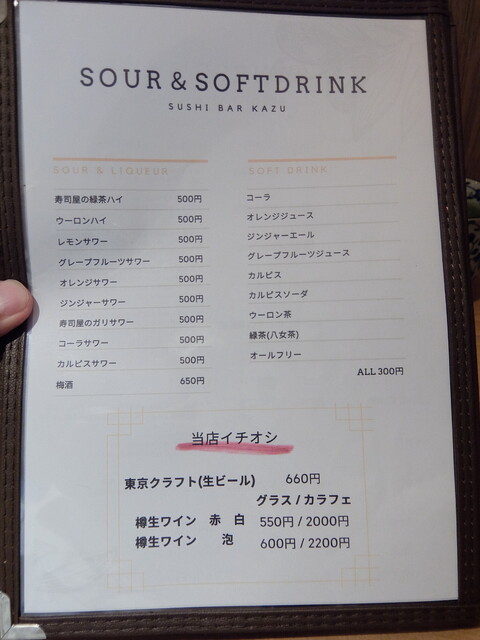 SOUR & SOFTDRINK
SUSHI BAR KAZU
SOUR & LIQUEUR
寿司屋の緑茶ハイ 500円
ウーロンハイ 500円
レモンサワー 500円
グレープフルーツサワー 500円
オレンジサワー 500円
ジンジャーサワー 500円
寿司屋のガリサワー 500円
コーラサワー 500円
カルピスサワー 500円
梅酒 650円
SOFT DRINK
コーラ
オレンジジュース
ジンジャーエール
グレープフルーツジュース
カルピス
カルピスソーダ
ウーロン茶
緑茶(八女茶)
オールフリー
ALL 300円
当店イチオシ
東京クラフト(生ビール) 660円
グラス / カラフェ
樽生ワイン 赤 白 550円 / 2000円
樽生ワイン 泡 600円 / 2200円